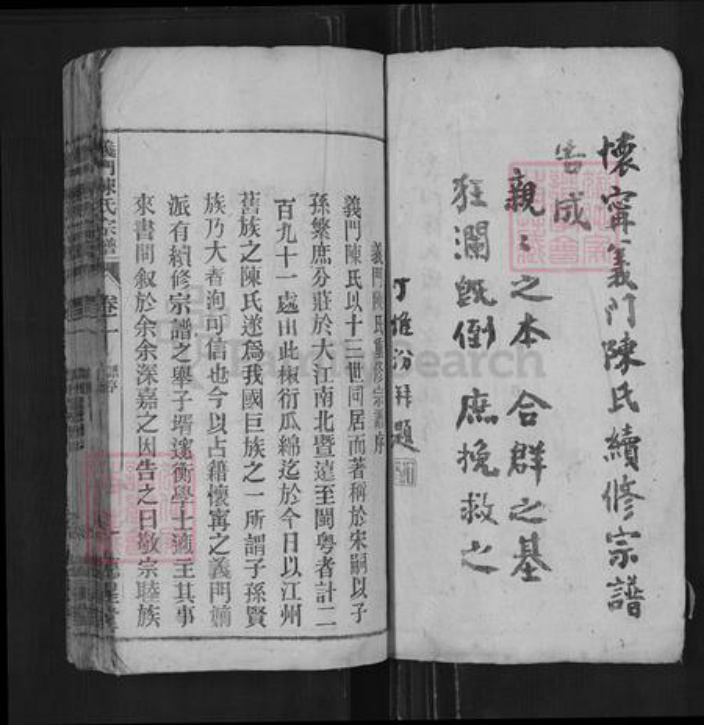 懷寧義門陳氏續修宗譜
告成
親〻之本 合群之基
狂瀾旣倒 庶挽救之
丁惟汾拜題
義門陳氏重修宗譜序
義門陳氏以十三世同居而著稱於宋嗣以子
孫繁庶分莊於大江南北曁遠至閩粤者計二
百九十一處由此椒衍瓜綿迄於今日以江州
舊族之陳氏遂爲我國巨族之一所謂子孫賢
族乃大者洵可信也今以占籍懷寗之義門嫡
派有續修宗譜之舉子壻蘧衡學士適主其事
來書間叙於余余深嘉之因告之曰敬宗睦族
義門陳氏宗譜
卷一